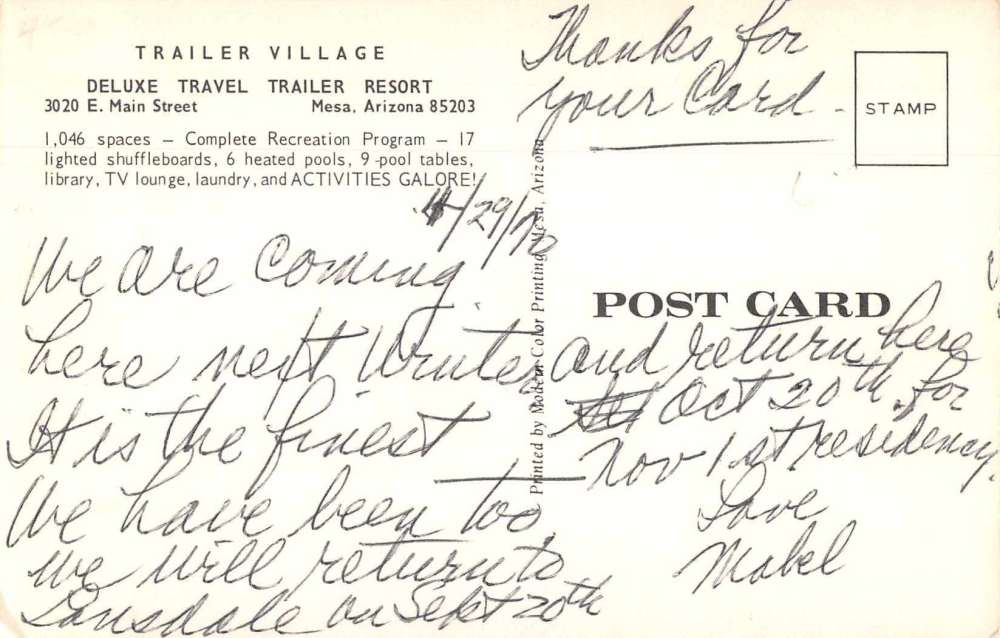 TRAILER VILLAGE
DELUXE TRAVEL TRAILER RESORT
3020 E. Main Street Mesa, Arizona 85203
1,046 spaces – Complete Recreation Program – 17
lighted shuffleboards, 6 heated pools, 9-pool tables,
library, TV lounge, laundry, and ACTIVITIES GALORE!
Thanks for
your Card -
STAMP
Printed by Modern Color Printing, Mesa, Arizona
POST CARD
/29/72
We are coming
here next Winter
It is the finest
We have been to
we will return to
Lansdale on Sept 20th
and return here
Oct 20th for
Nov 1st residency.
Love
Mabel